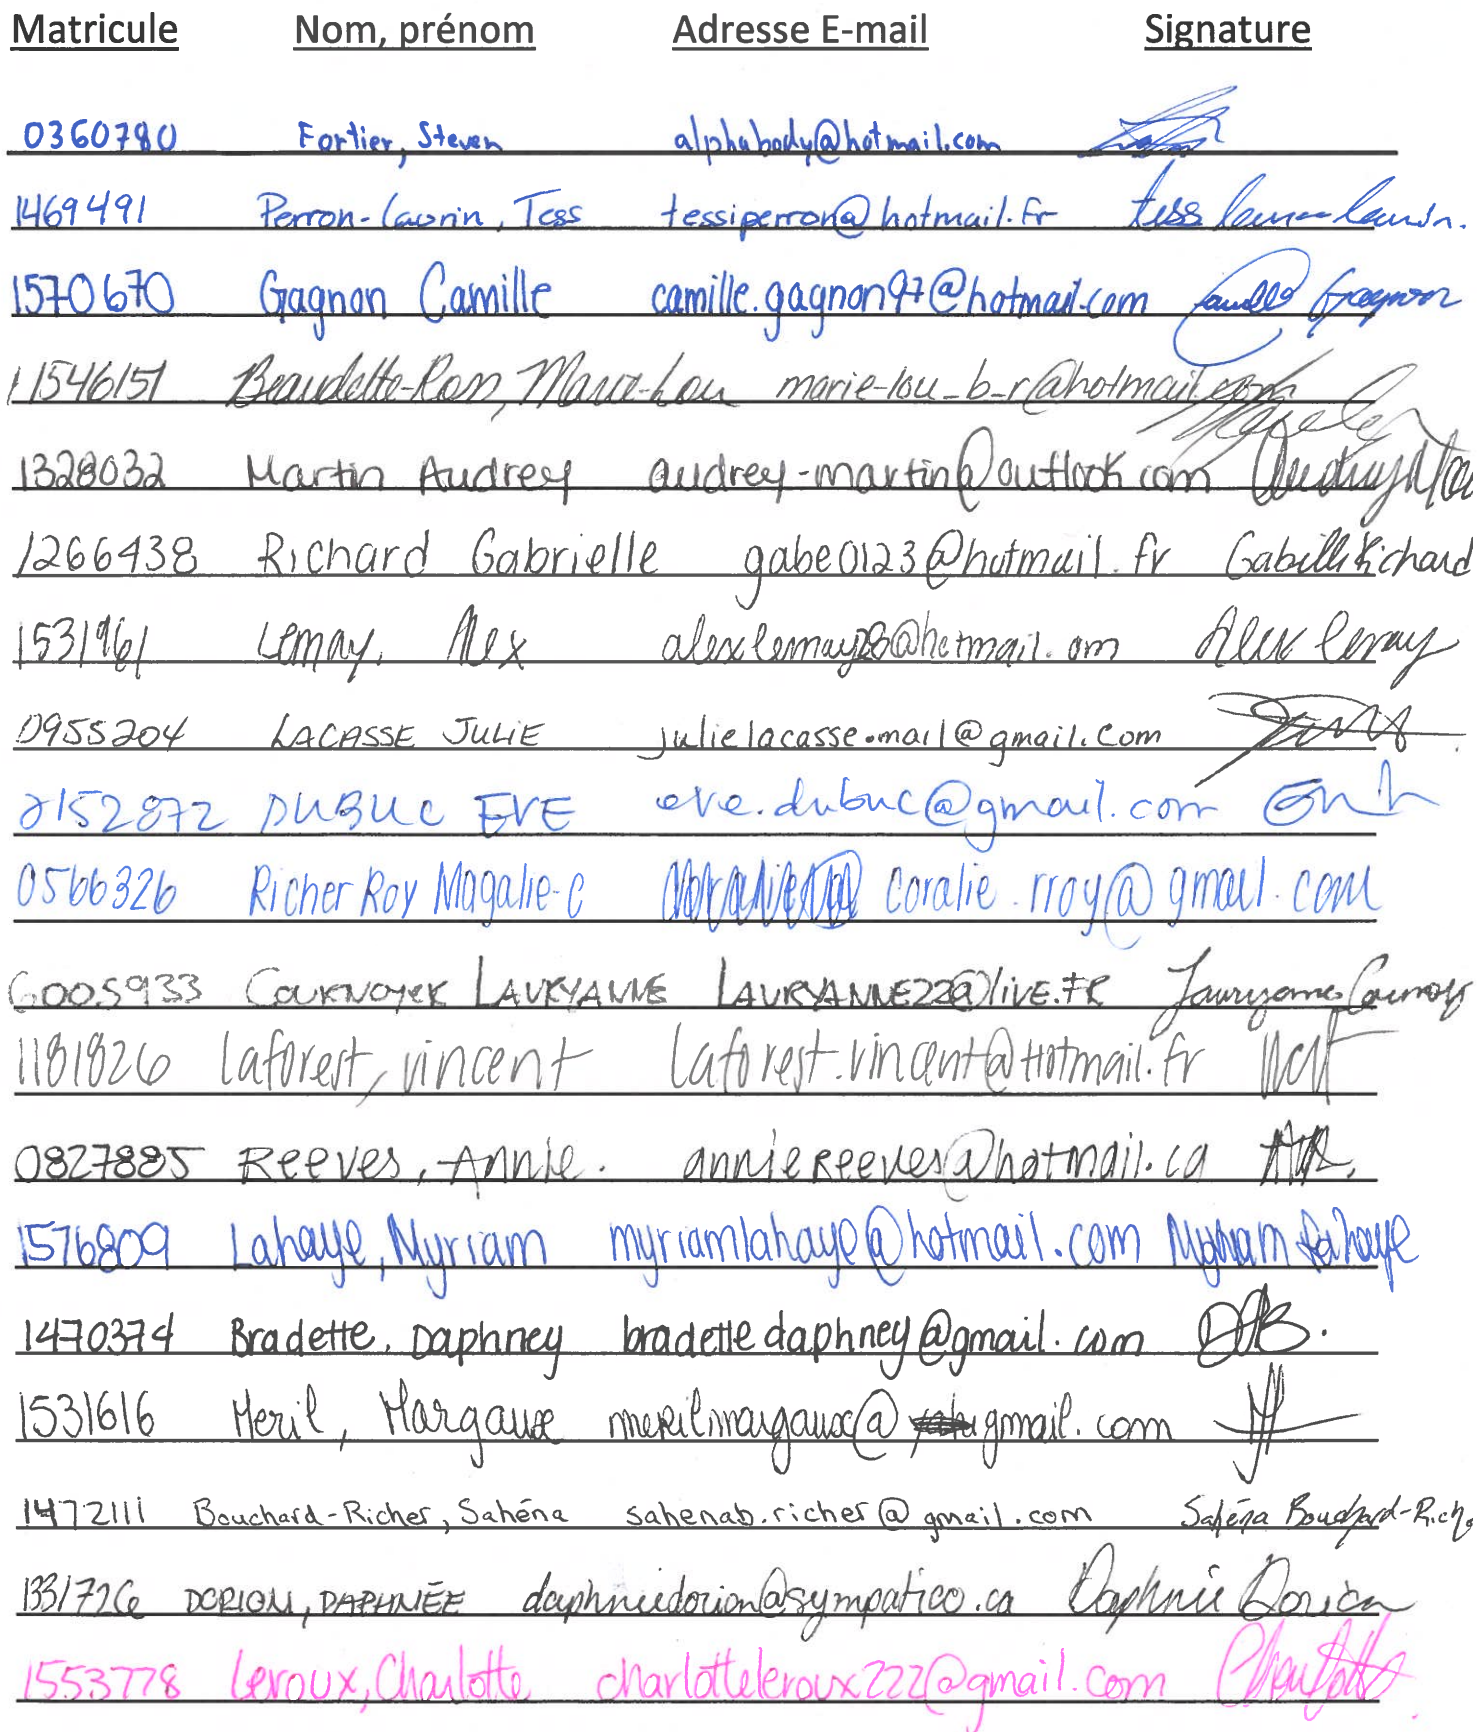 Matricule Nom, prénom Adresse E-mail Signature
0360780 Fortier, Steven alphabody@hotmail.com
1469491 Perron-Laurin, Tess tessiperron@hotmail.fr tess
1570670 Gagnon Camille camille.gagnon97@hotmail.com Camille Gagnon
11546151 Beaudette-Ross, Marie-Lou marie-lou_b_r@hotmail.com
1328032 Martin Audrey audrey-martin@outlook.com
1266438 Richard Gabrielle gabe0123@hotmail.fr Richard
1531961 Lemay, Alex @hotmail.om Alex Lemay
0955204 LACASSE JULIE julielacasse.mail@gmail.com
2152872 DUBUC EVE eve.dubuc@gmail.com
0566326 Richer Roy Magalie-C coralie.rroy@gmail.com
6005933 COURNOYER LAURYANNE LAURYANNE22@live.FR
1181826 laforest, vincent laforest.vincent@Hotmail.fr
0827885 Reeves, Annie. annieReeves@hotmail.ca
1576809 Lahaye, Myriam myriamlahaye@hotmail.com Myriam Lahaye
1470374 Bradette, Daphney bradettedaphney@gmail.com
1531616 Meril, Margaux merilmargaux@gmail.com
1472111 Bouchard-Richer, Sahéna sahenab.richer@gmail.com Sahéna Bouchard-Riche
1331726 DORION, DAPHNÉE daphneedorion@sympatico.ca Daphnée Dorion
1553778 Leroux, Charlotte charlotteleroux222@gmail.com Charlotte